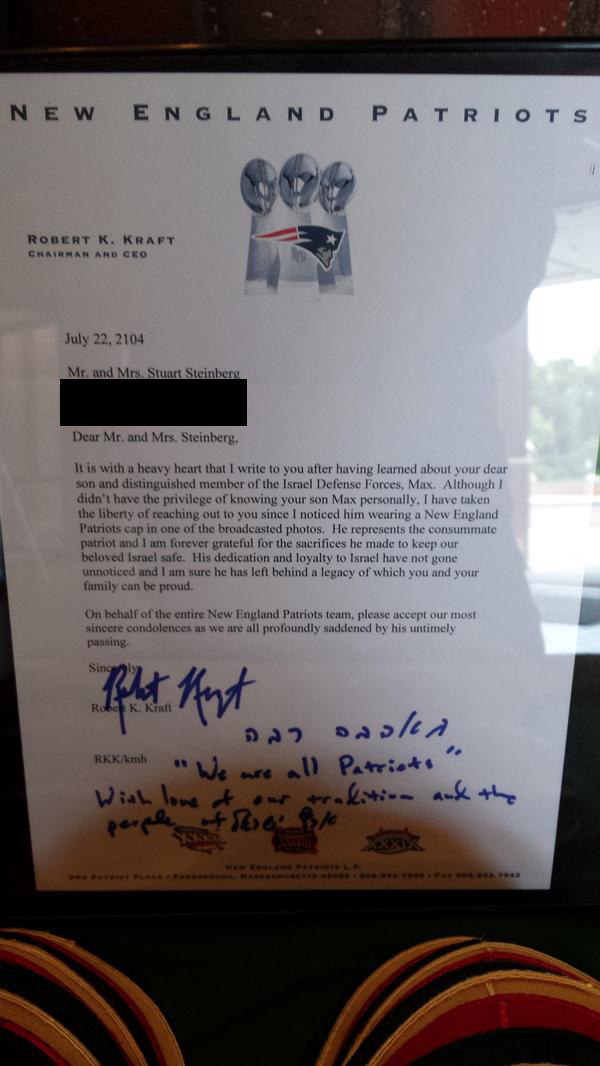 NEW ENGLAND PATRIOTS
ROBERT K. KRAFT
CHAIRMAN AND CEO
July 22, 2104
Mr. and Mrs. Stuart Steinberg
Dear Mr. and Mrs. Steinberg,
It is with a heavy heart that I write to you after having learned about your dear
son and distinguished member of the Israel Defense Forces, Max. Although I
didn't have the privilege of knowing your son Max personally, I have taken
the liberty of reaching out to you since I noticed him wearing a New England
Patriots cap in one of the broadcasted photos. He represents the consummate
patriot and I am forever grateful for the sacrifices he made to keep our
beloved Israel safe. His dedication and loyalty to Israel have not gone
unnoticed and I am sure he has left behind a legacy of which you and your
family can be proud.
On behalf of the entire New England Patriots team, please accept our most
sincere condolences as we are all profoundly saddened by his untimely
passing.
Sincerely,
Robert K. Kraft
רבה
RKK/kmh
"We are all Patriots"
With love of our tradition and the
people of
NEW ENGLAND PATRIOTS L.P.
ONE PATRIOT PLACE • FOXBOROUGH, MASSACHUSETTS 02035 • 508.543.7940 • FAX 508.543.7942